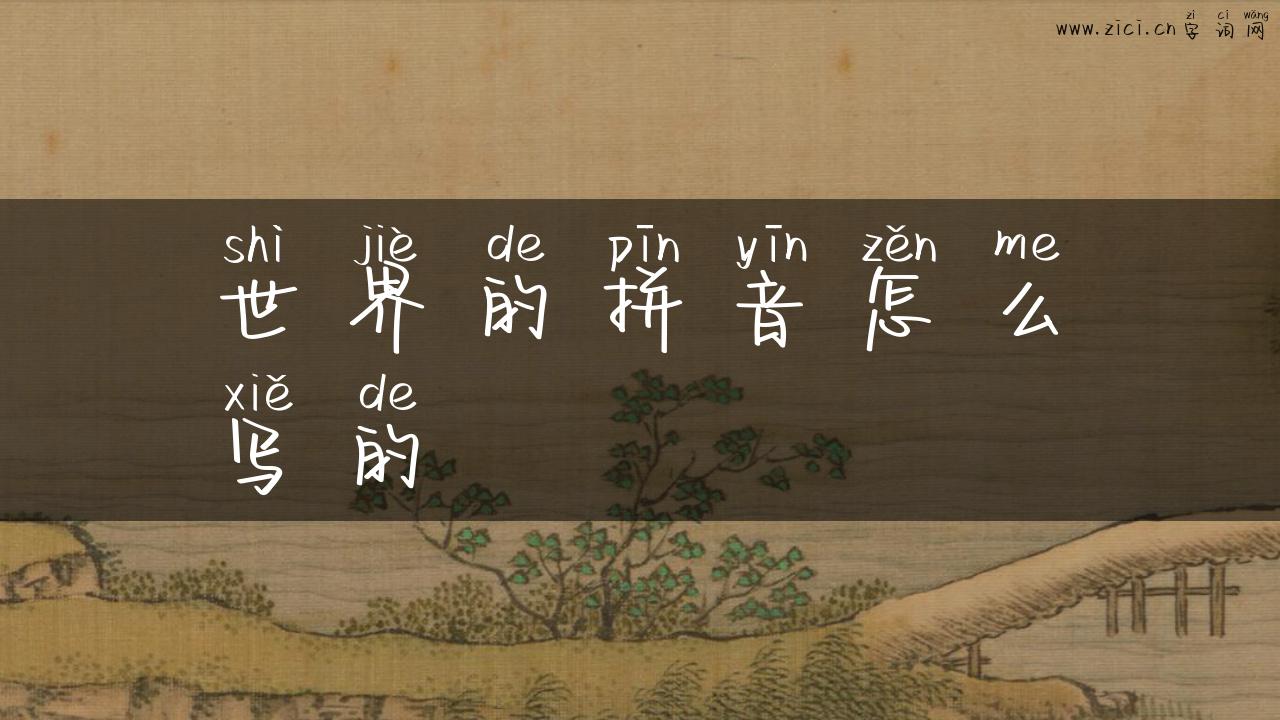 zì cí wǎng
www.zici.cn 字词网
shì jiè de pīn yīn zěn me
世界的拼音怎么
xiě de
写的